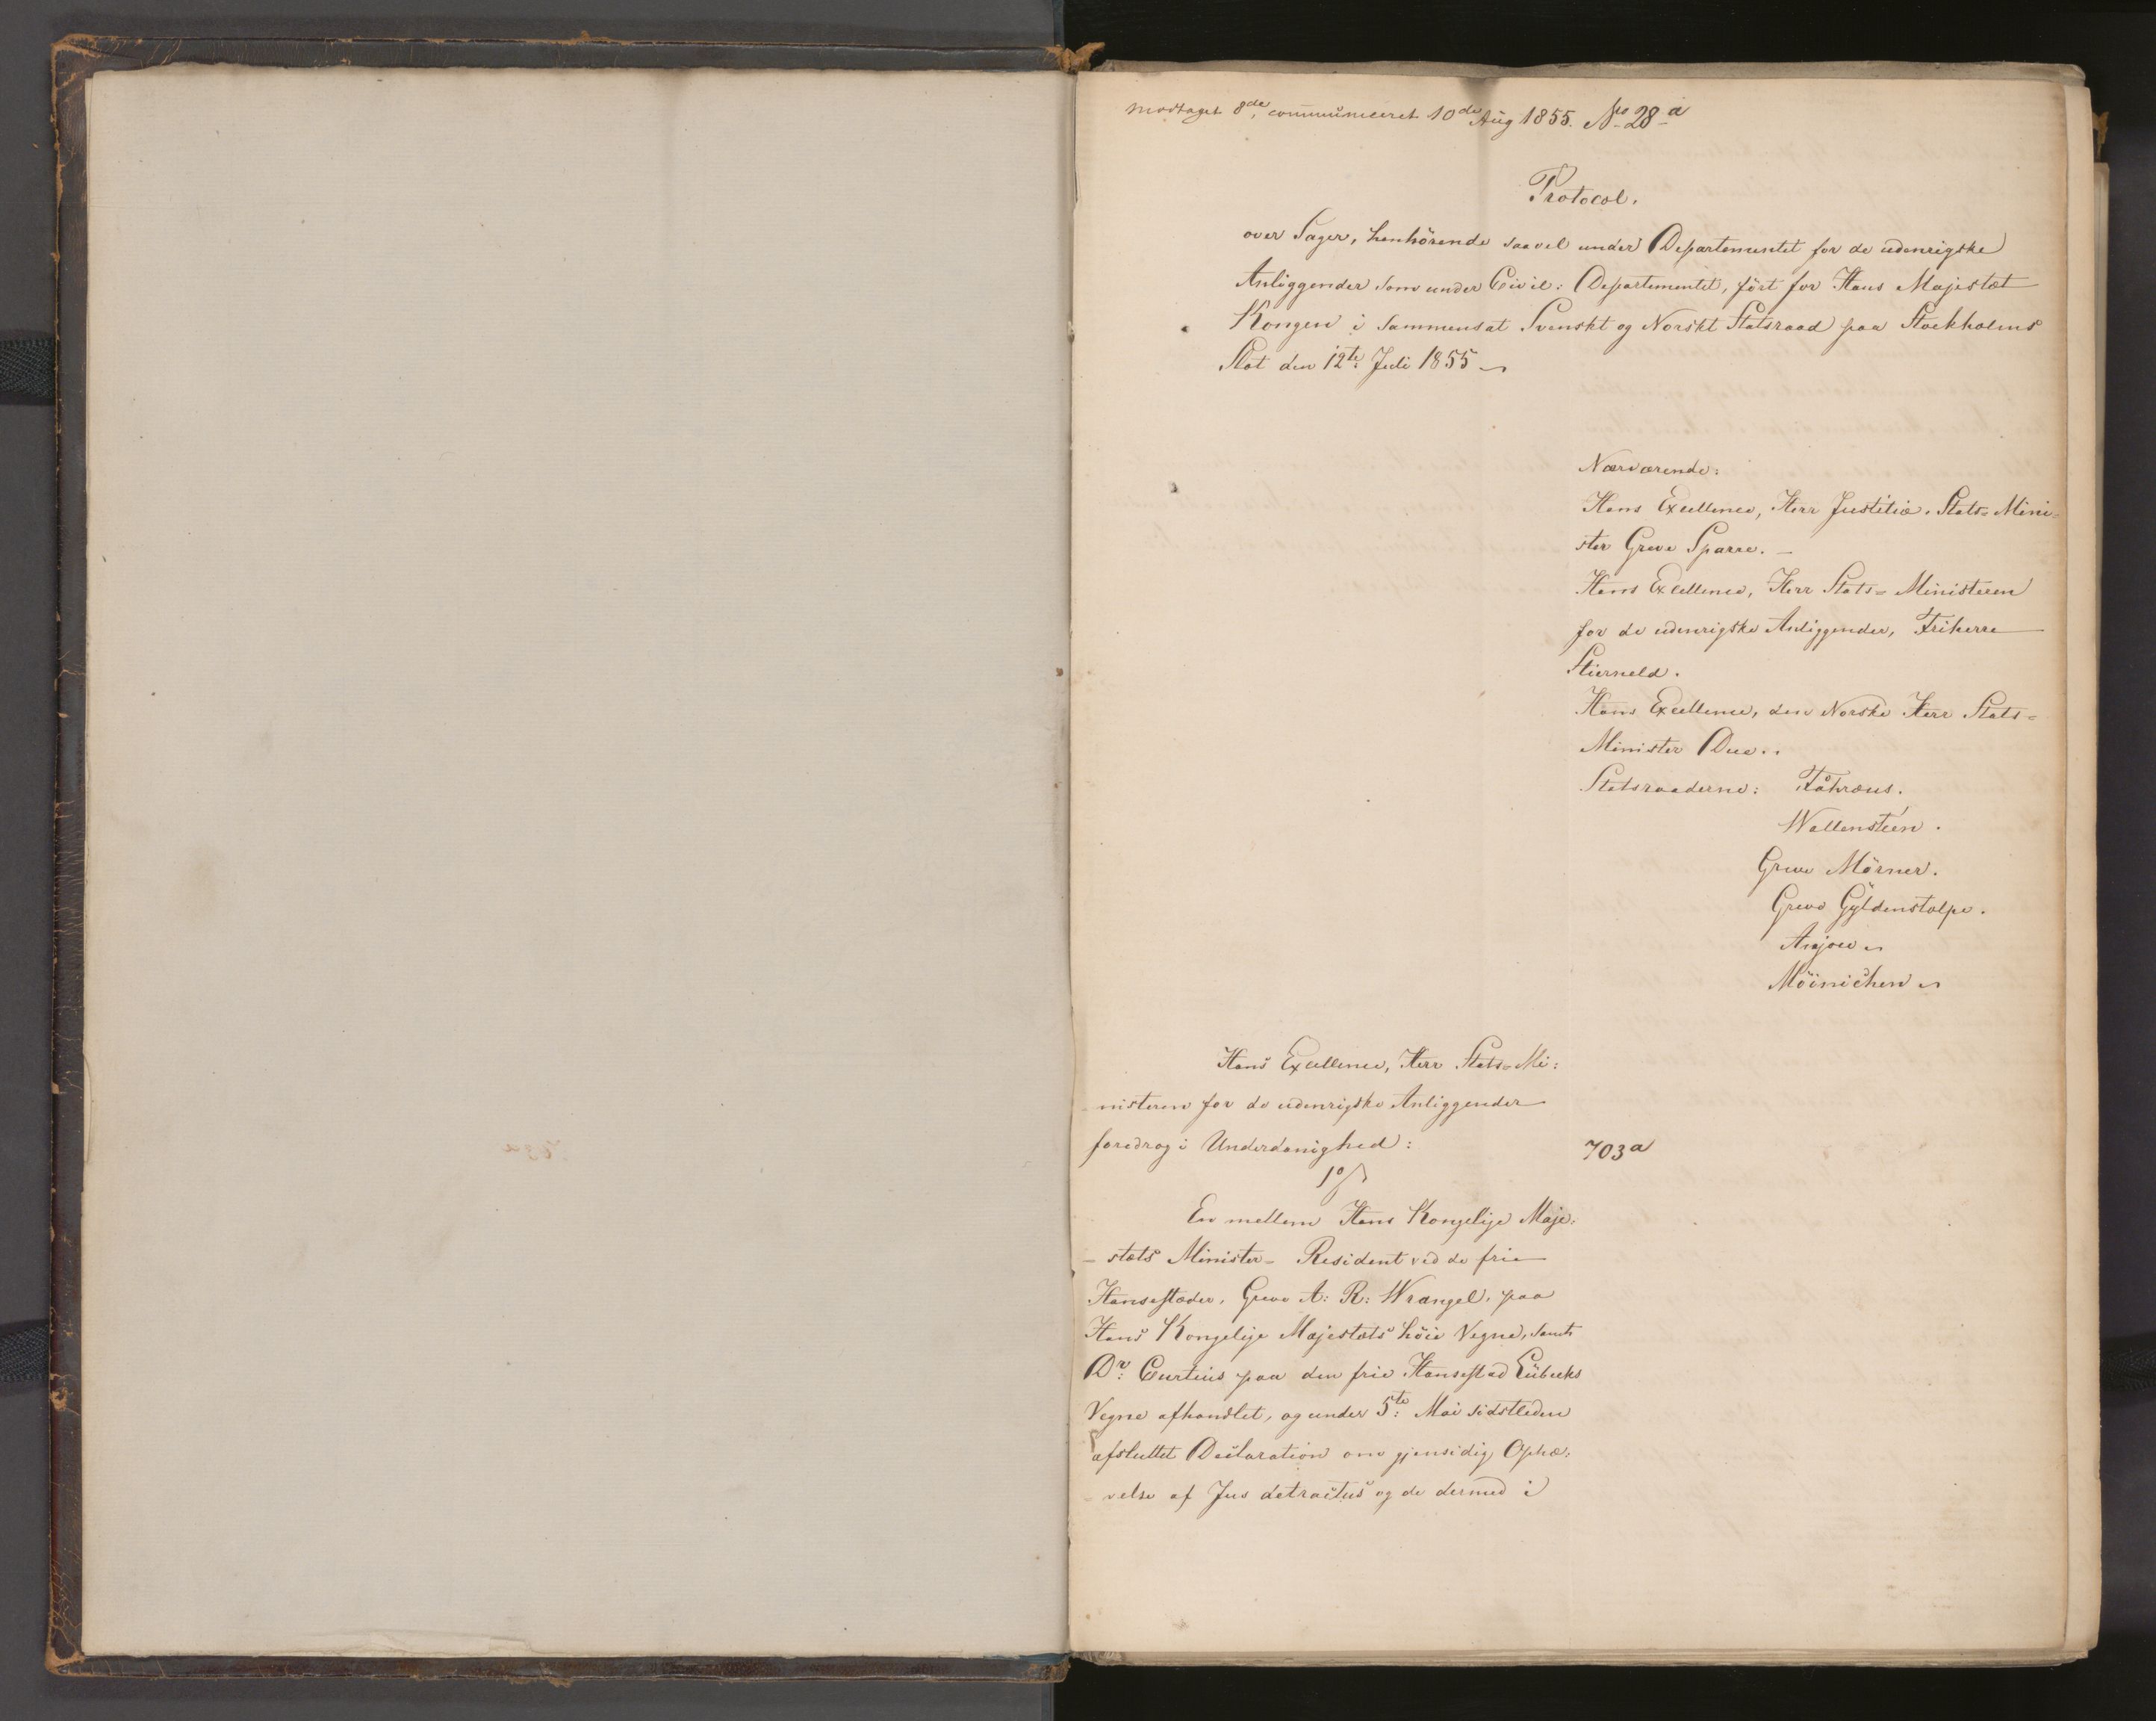 modtaget 8de, communiceret 10de Aug 1855. No 28 a
Protocol.
over Sager, henhörende saavel under Departementet for de udenrigske
Anliggender som under Civil: Departementet, fört for Hans Majestæt
Kongen i Sammensat Svenskt og Norskt Statsraad paa Stockholms
Slot den 12te Juli 1855
Nærværende:
Hans Excellence, Herr Justitiæ. Stats=Mini=
ster Greve Sparre. –
Hans Excellence, Herr Stats=Ministeren
for de udenrigske Anliggender, Friherre
Stierneld.
Hans Excellence, den Norske Herr Stats=
Minister Due.
Statsraaderne: Fåhræus.
Wallensteen.
Greve Mörner.
Greve Gyldenstolpe.
Anjou
Möinichen
Hans Excellence, Herr Stats=Mi:
nisteren for de udenrigske Anliggender
foredrog i Underdanighed:
703a
1o
En mellem Hans Kongelige Maje:
– stæts Minister= Resident ved de frie
Hansestæder, Greve A: R: Wrangel, paa
Hans Kongelige Majestæts höie Vegne, samt
Dr: Curtius paa den frie Hansestad Lübecks
Vegne afhandlet, og under 5te: Mai sidstleden
afsluttet Declaration om gjensidig Ophæ:
– velse af Jus detractus og de dermed i